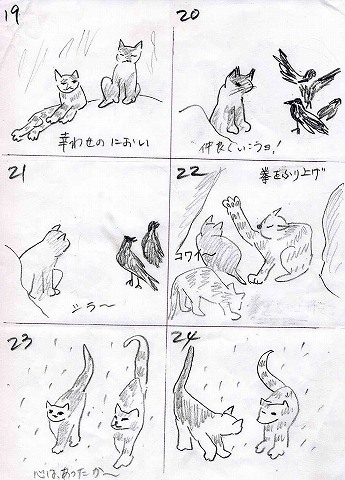 19
幸わせの におい
20
仲良くいこうヨ!
21
シラ〜
22
拳をふり上げ
コワイ〜
23
心は、あったか〜
24